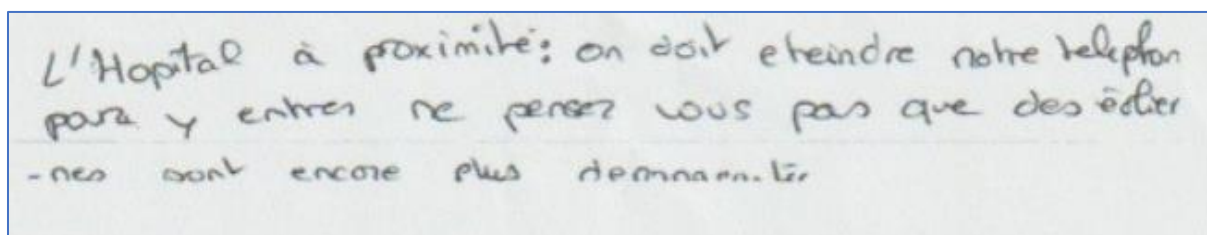 L'Hopital à proximité: on doit eteindre notre telephon
pour y entrer ne pensez vous pas que des éolien
-nes sont encore plus